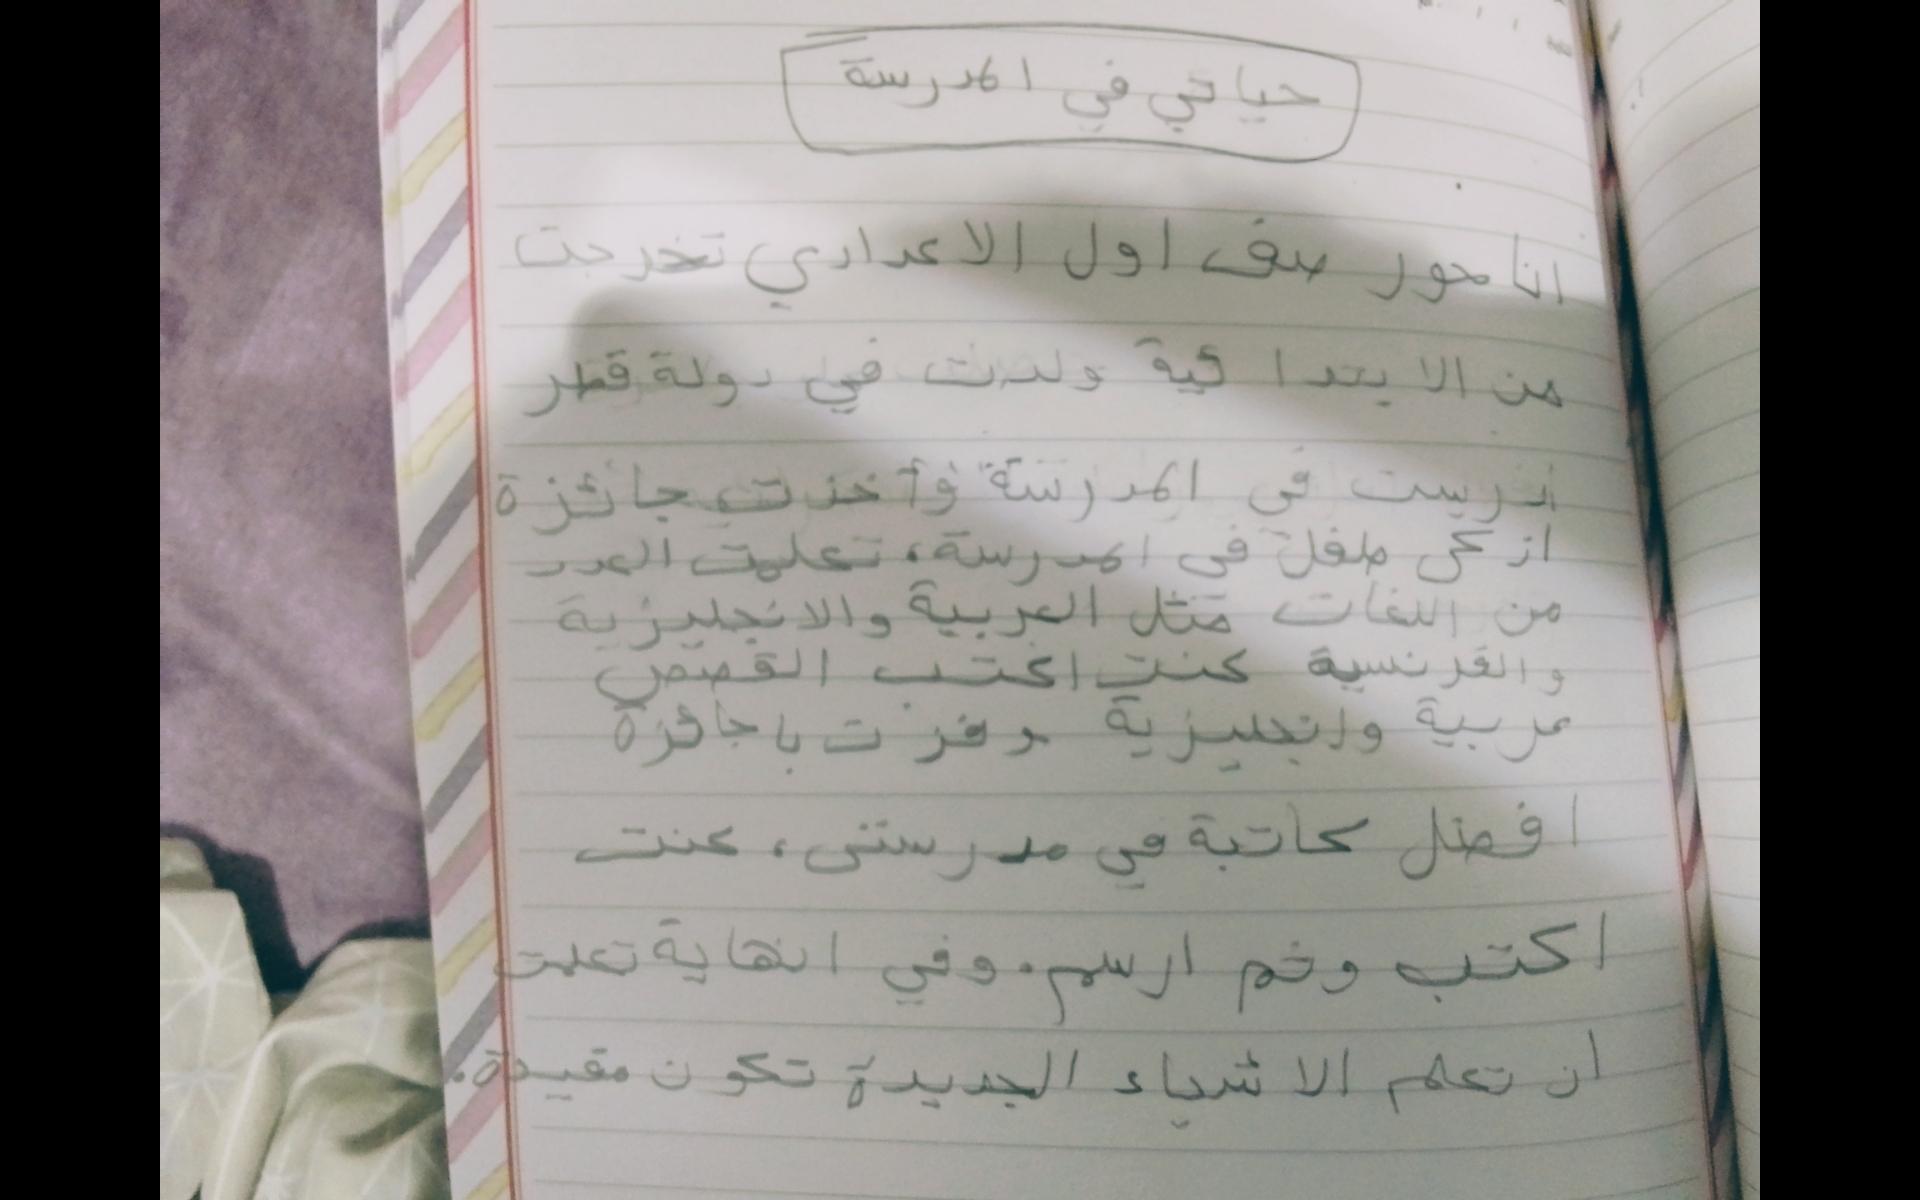 حياتي في المدرسة
انا حور صف اول الاعدادي تخرجت
من الابتدائية ولدت في دولة قطر
ادرست في المدرسة وأخذت جائزة
ازكى طفل في المدرسة، تعلمت العدد
من اللغات مثل العربية والانجليزية
والفرنسية كنت اكتب القصص
عربية وانجليزية وفزت باجائزة
افضل كاتبة في مدرستي، كنت
اكتب وثم ارسم. وفي انهاية تعلمت
ان تعلم الاشياء الجديدة تكون مفيدة.